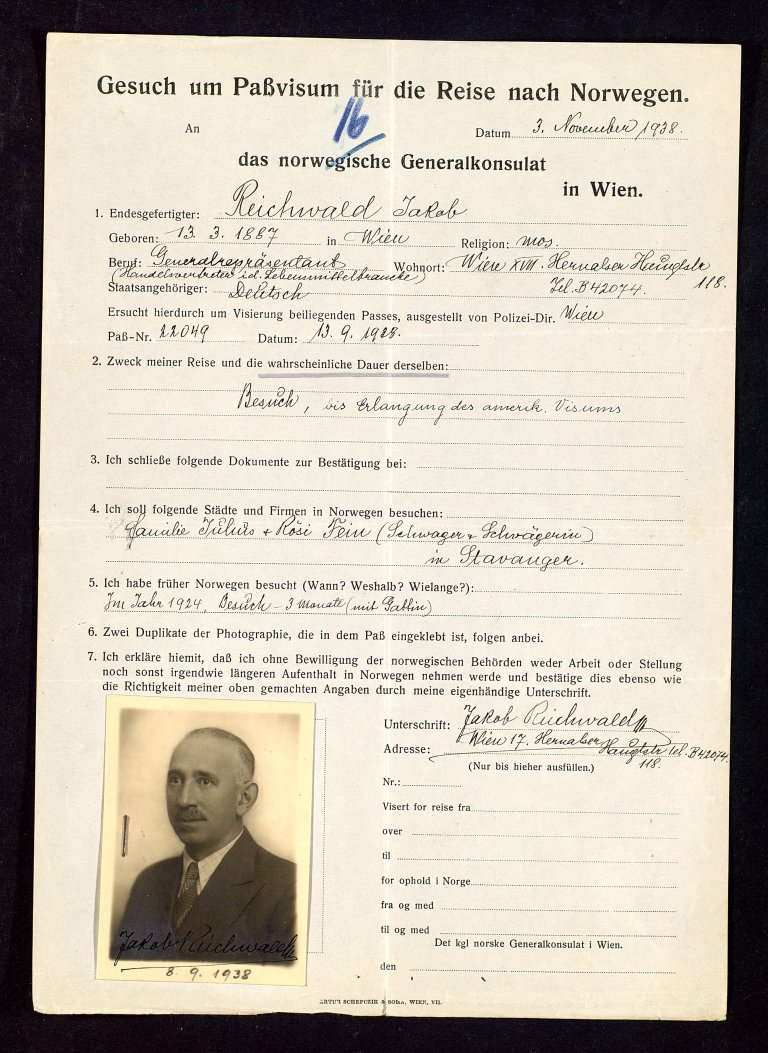 Gesuch um Paßvisum für die Reise nach Norwegen.
16
An
Datum 3. November 1938.
das norwegische Generalkonsulat
in Wien.
1. Endesgefertigter: Reichwald Jakob
Geboren: 13. 3. 1887 in Wien Religion: mos.
Beruf: Generalrepräsentant Wohnort: Wien XVII. Hernalser Hauptstr
(Handelsvertreter i.d. Lebensmittelbranche) 118.
Staatsangehöriger: Deutsch Tel. B42074.
Ersucht hierdurch um Visierung beiliegenden Passes, ausgestellt von Polizei-Dir. Wien
Paß-Nr. 22049 Datum: 13. 9. 1938.
2. Zweck meiner Reise und die wahrscheinliche Dauer derselben:
Besuch, bis Erlangung des amerik. Visums
3. Ich schließe folgende Dokumente zur Bestätigung bei:
4. Ich soll folgende Städte und Firmen in Norwegen besuchen:
Familie Julius + Rosi Fein (Schwager + Schwägerin)
in Stavanger.
5. Ich habe früher Norwegen besucht (Wann? Weshalb? Wielange?):
Im Jahr 1924, Besuch - 3 Monate (mit Gattin)
6. Zwei Duplikate der Photographie, die in dem Paß eingeklebt ist, folgen anbei.
7. Ich erkläre hiemit, daß ich ohne Bewilligung der norwegischen Behörden weder Arbeit oder Stellung
noch sonst irgendwie längeren Aufenthalt in Norwegen nehmen werde und bestätige dies ebenso wie
die Richtigkeit meiner oben gemachten Angaben durch meine eigenhändige Unterschrift.
Unterschrift: Jakob Reichwald
Adresse: Wien 17. Hernalser Hauptstr Tel. B42074.
118.
(Nur bis hieher ausfüllen.)
Nr.:
Visert for reise fra
over
til
for ophold i Norge
fra og med
til og med
Det kgl norske Generalkonsulat i Wien.
den
Jakob Reichwald
8. 9. 1938
ARTUR SCHEFCZIK & SOHN, WIEN, VII.